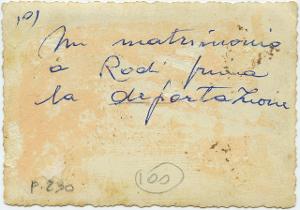 101
Un matrimonio
a Rodi prima
la deportazione
P. 290
100